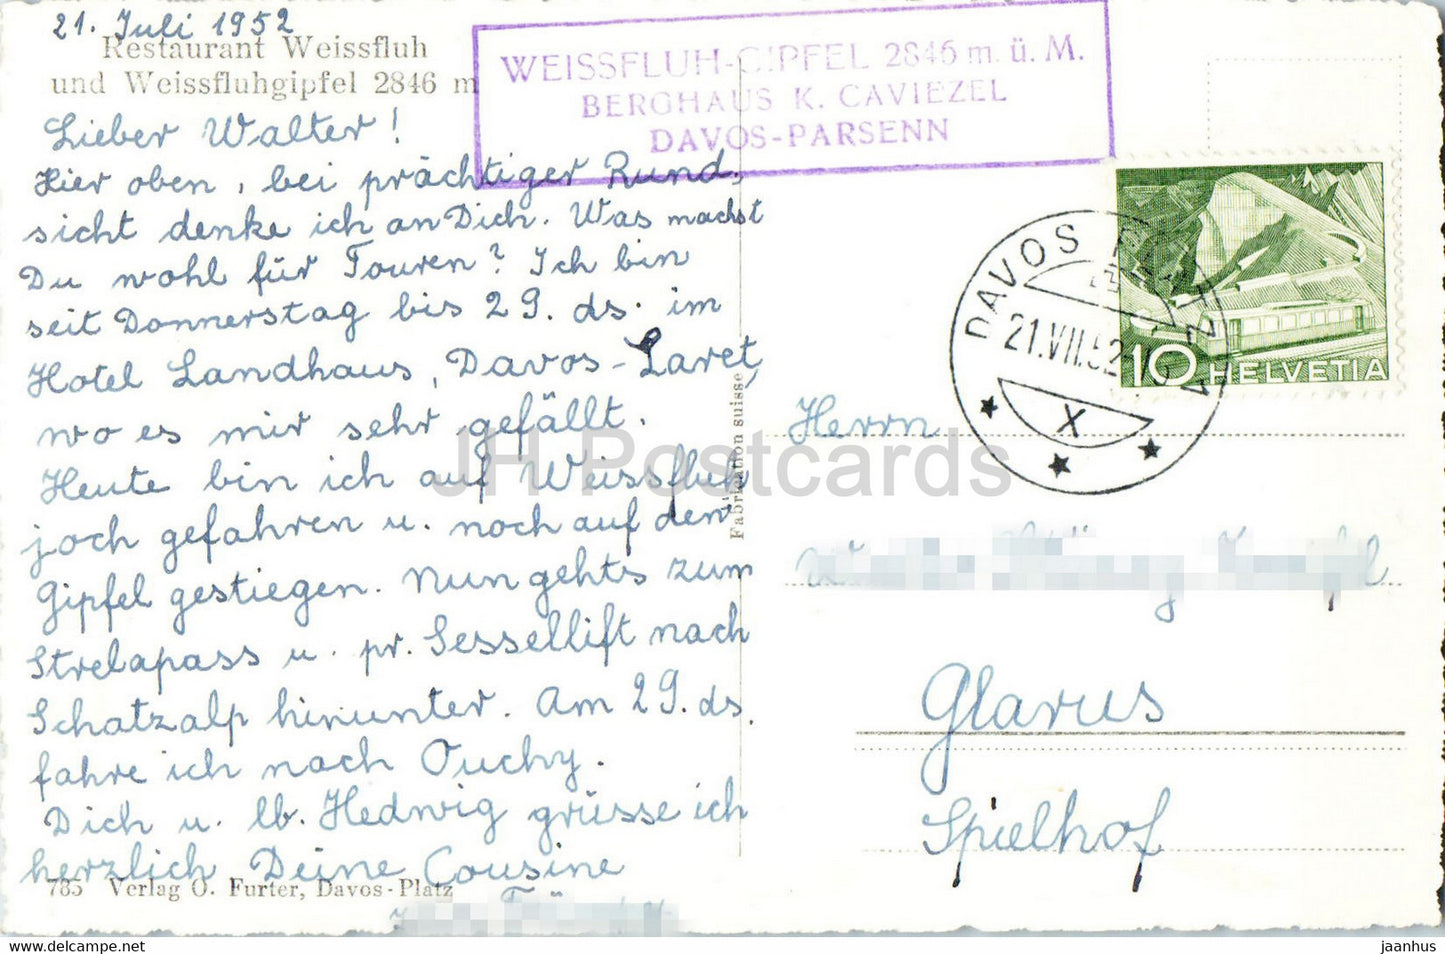 21. Juli 1952
Restaurant Weissfluh
und Weissfluhgipfel 2846 m
Lieber Walter!
Hier oben, bei prächtiger Rund-
sicht denke ich an Dich. Was machst
Du wohl für Touren? Ich bin
seit Donnerstag bis 29. ds. im
Hotel Landhaus, Davos-Laret,
wo es mir sehr gefällt.
Heute bin ich auf Weissfluh
joch gefahren u. noch auf den
Gipfel gestiegen. Nun gehts zum
Strelapass u. pr. Sessellift nach
Schatzalp hinunter. Am 29. ds.
fahre ich nach Ouchy.
Dich u. lb. Hedwig grüsse ich
herzlich Deine Cousine
785 Verlag O. Furter, Davos-Platz
Fabrication suisse
WEISSFLUH-GIPFEL 2846 m. ü. M.
BERGHAUS K. CAVIEZEL
DAVOS-PARSENN
DAVOS PLATZ
21.VII.52
X
10 HELVETIA
Herrn
Glarus
Spielhof
JH Postcards
www.delcampe.net
jaanhus